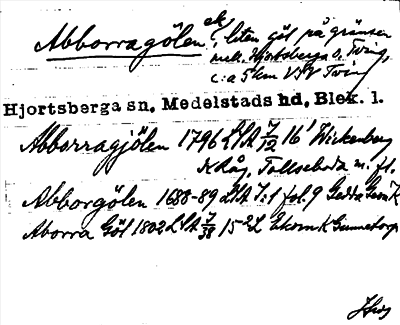 Abborragölen ek, liten göl på gränsen
mell. Hjortsberga o. Tving,
c:a 5 km VSV Tving
Hjortsberga sn, Medelstads hd, Blek. l.
Abborragjölen 1796 LSA 7/12 16¹ Wickenberg
K Råg, Tollseboda m. fl.
Abborgölen 1688-89 LSA I:1 fol. 9 Gedda Geom K
Aborra Göl 1802 LSA 7/38 15-2 L Ekorn K Gunnetorp